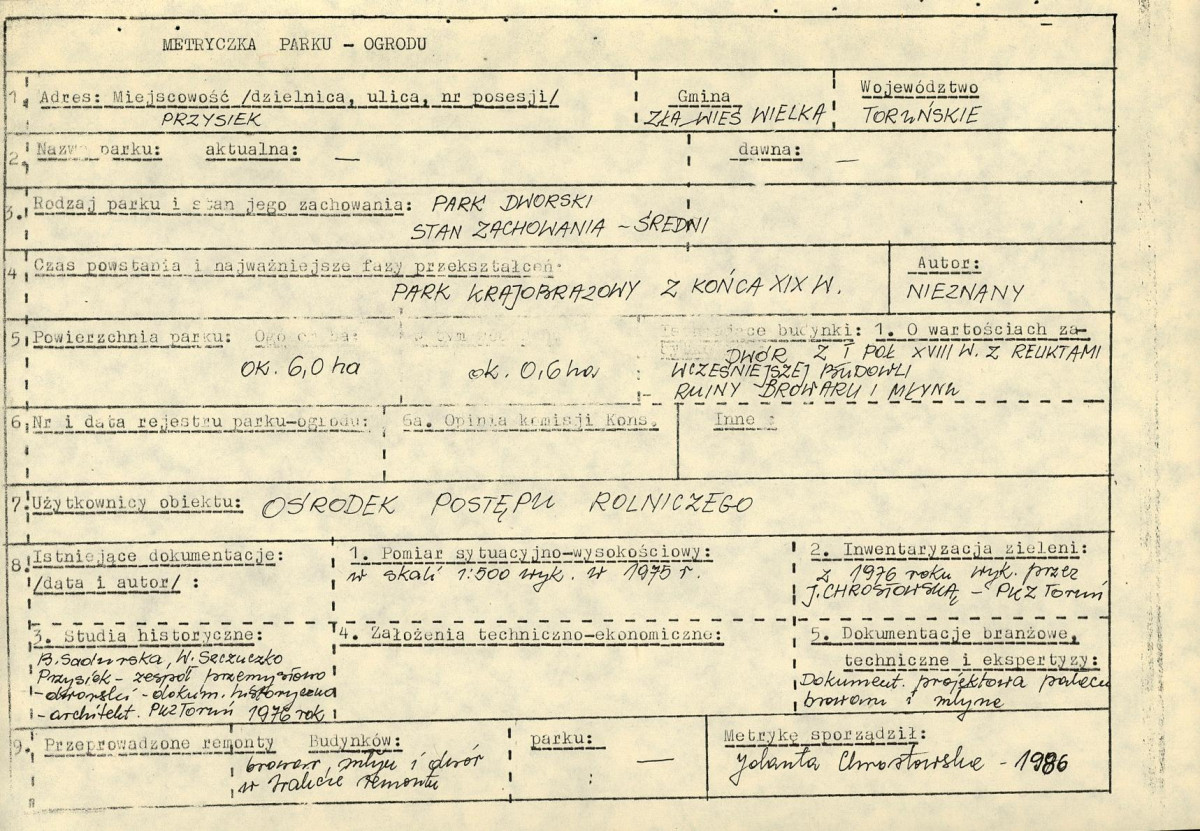 METRYCZKA PARKU - OGRODU
1. Adres: Miejscowość /dzielnica, ulica, nr posesji/
PRZYSIEK
Gmina
ZŁA WIEŚ WIELKA
Województwo
TORUŃSKIE
2. Nazwa parku: aktualna: — dawna: —
3. Rodzaj parku i stan jego zachowania: PARK DWORSKI
STAN ZACHOWANIA - ŚREDNI
4 Czas powstania i najważniejsze fazy przekształceń:
PARK KRAJOBRAZOWY Z KOŃCA XIX W.
Autor:
NIEZNANY
5. Powierzchnia parku:
ok. 6,0 ha
w tym
ok. 0,6 ha
budynki: 1. O wartościach za-
DWÓR Z I POŁ XVIII W. Z RELIKTAMI
WCZEŚNIEJSZEJ BUDOWLI
- RUINY BROWARU I MŁYNA
6. Nr i data rejestru parku-ogrodu:
6a. Opinia komisji Kons.
Inne :
7. Użytkownicy obiektu: OŚRODEK POSTĘPU ROLNICZEGO
8. Istniejące dokumentacje:
/data i autor/ :
1. Pomiar sytuacyjno-wysokościowy:
w skali 1:500 wyk. w 1975 r.
2. Inwentaryzacja zieleni:
z 1976 roku wyk. przez
J. CHROSTOWSKĄ - PKZ Toruń
3. Studia historyczne:
B. Sadurska, W. Szczuczko
Przysiek - zespół przemysłowo
- dworski - dokum. historyczna
- architekt. PKZ Toruń 1976 rok
4. Założenia techniczno-ekonomiczne:
5. Dokumentacje branżowe,
techniczne i ekspertyzy:
Dokument. projektowa pałacu
browaru i młyna
9. Przeprowadzone remonty Budynków:
browar, młyn i dwór
w trakcie remontu
parku:
—
Metrykę sporządził:
Jolanta Chrostowska - 1986